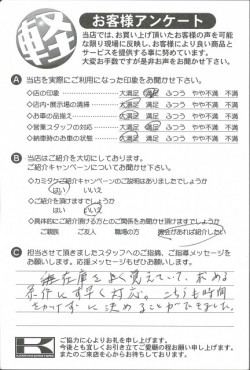 軽
お客様アンケート
当店では、お買い上げ頂いたお客様の声を可能
な限り現場に反映し、お客様により良い商品と
サービスを提供する事に努めています。
大変お手数ですが是非お声をお聞かせ下さい。
A 当店を実際にご利用になった印象をお聞かせ下さい。
◇店の印象 大満足 満足 ふつう やや不満 不満
◇店内・展示場の清掃 大満足 満足 ふつう やや不満 不満
◇お車の品揃え 大満足 満足 ふつう やや不満 不満
◇営業スタッフの対応 大満足 満足 ふつう やや不満 不満
◇納車時のお車の状態 大満足 満足 ふつう やや不満 不満
B 当店はご紹介を大切にしております。
ご紹介キャンペーンについてお聞かせ下さい。
◇カミタケ紹介キャンペーンのご説明はありましたでしょうか
はい いいえ
◇ご紹介を頂けますでしょうか
はい いいえ
◇具体的にご紹介頂ける方とのご関係をお聞かせ頂けますでしょうか
ご親族 ご友人 職場の方 機会があれば紹介したい
C 担当させて頂きましたスタッフへのご指摘、ご指導メッセージを
お願いします。応援メッセージもぜひお願いします。
在庫をよく覚えていて、求める
条件にす早く対応。こちらも時間
をかけずに決めることができました。
K
ご協力に心よりお礼を申し上げます。
今後とも宜しくお引き立てご愛顧の程お願い申し上げます。
またのご来店を心からお待ちしております。